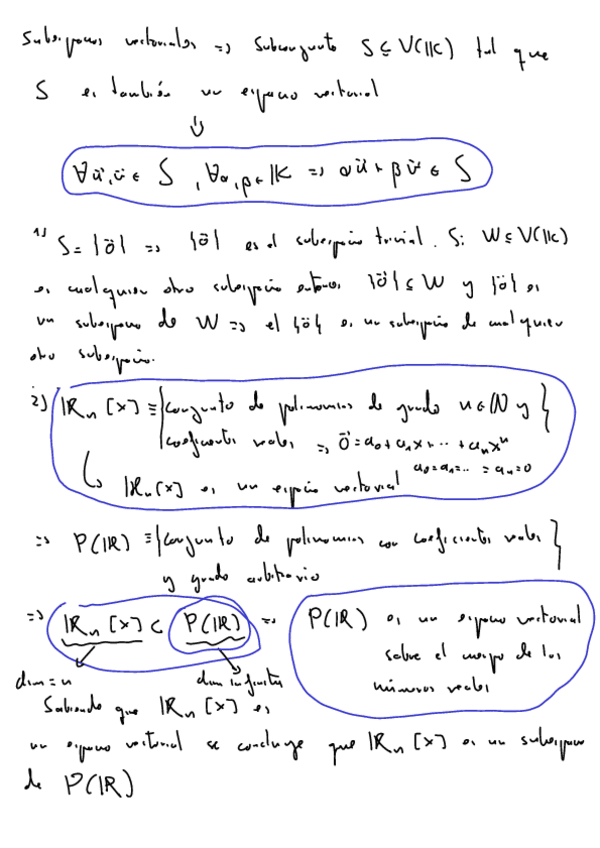 Subespacios vectoriales => Subconjunto S ⊆ V(IK) tal que
S es también un espacio vectorial
⇓
∀ū,v̄ ∈ S, ∀α,β ∈ IK => αū + βv̄ ∈ S
1) S = {ō} => {ō} es el subespacio trivial. Si W ⊆ V(IK)
es cualquier otro subespacio entonces {ō} ⊆ W y {ō} es
un subespacio de W => el {ō} es un subespacio de cualquier
otro subespacio.
2) IRn [x] ≡ {conjunto de polinomios de grado n ∈ IN y
coeficientes reales } => ō = a₀ + a₁x + ... + aₙxⁿ
a₀ = a₁ = ... = aₙ = 0
↳ IRn [x] es un espacio vectorial
=> P(IR) ≡ {conjunto de polinomios con coeficientes reales
y grado arbitrario}
=> IRn [x] ⊂ P(IR) => P(IR) es un espacio vectorial
sobre el cuerpo de los
números reales
dim = n dim infinita
Sabiendo que IRn [x] es
un espacio vectorial se concluye que IRn [x] es un subespacio
de P(IR)